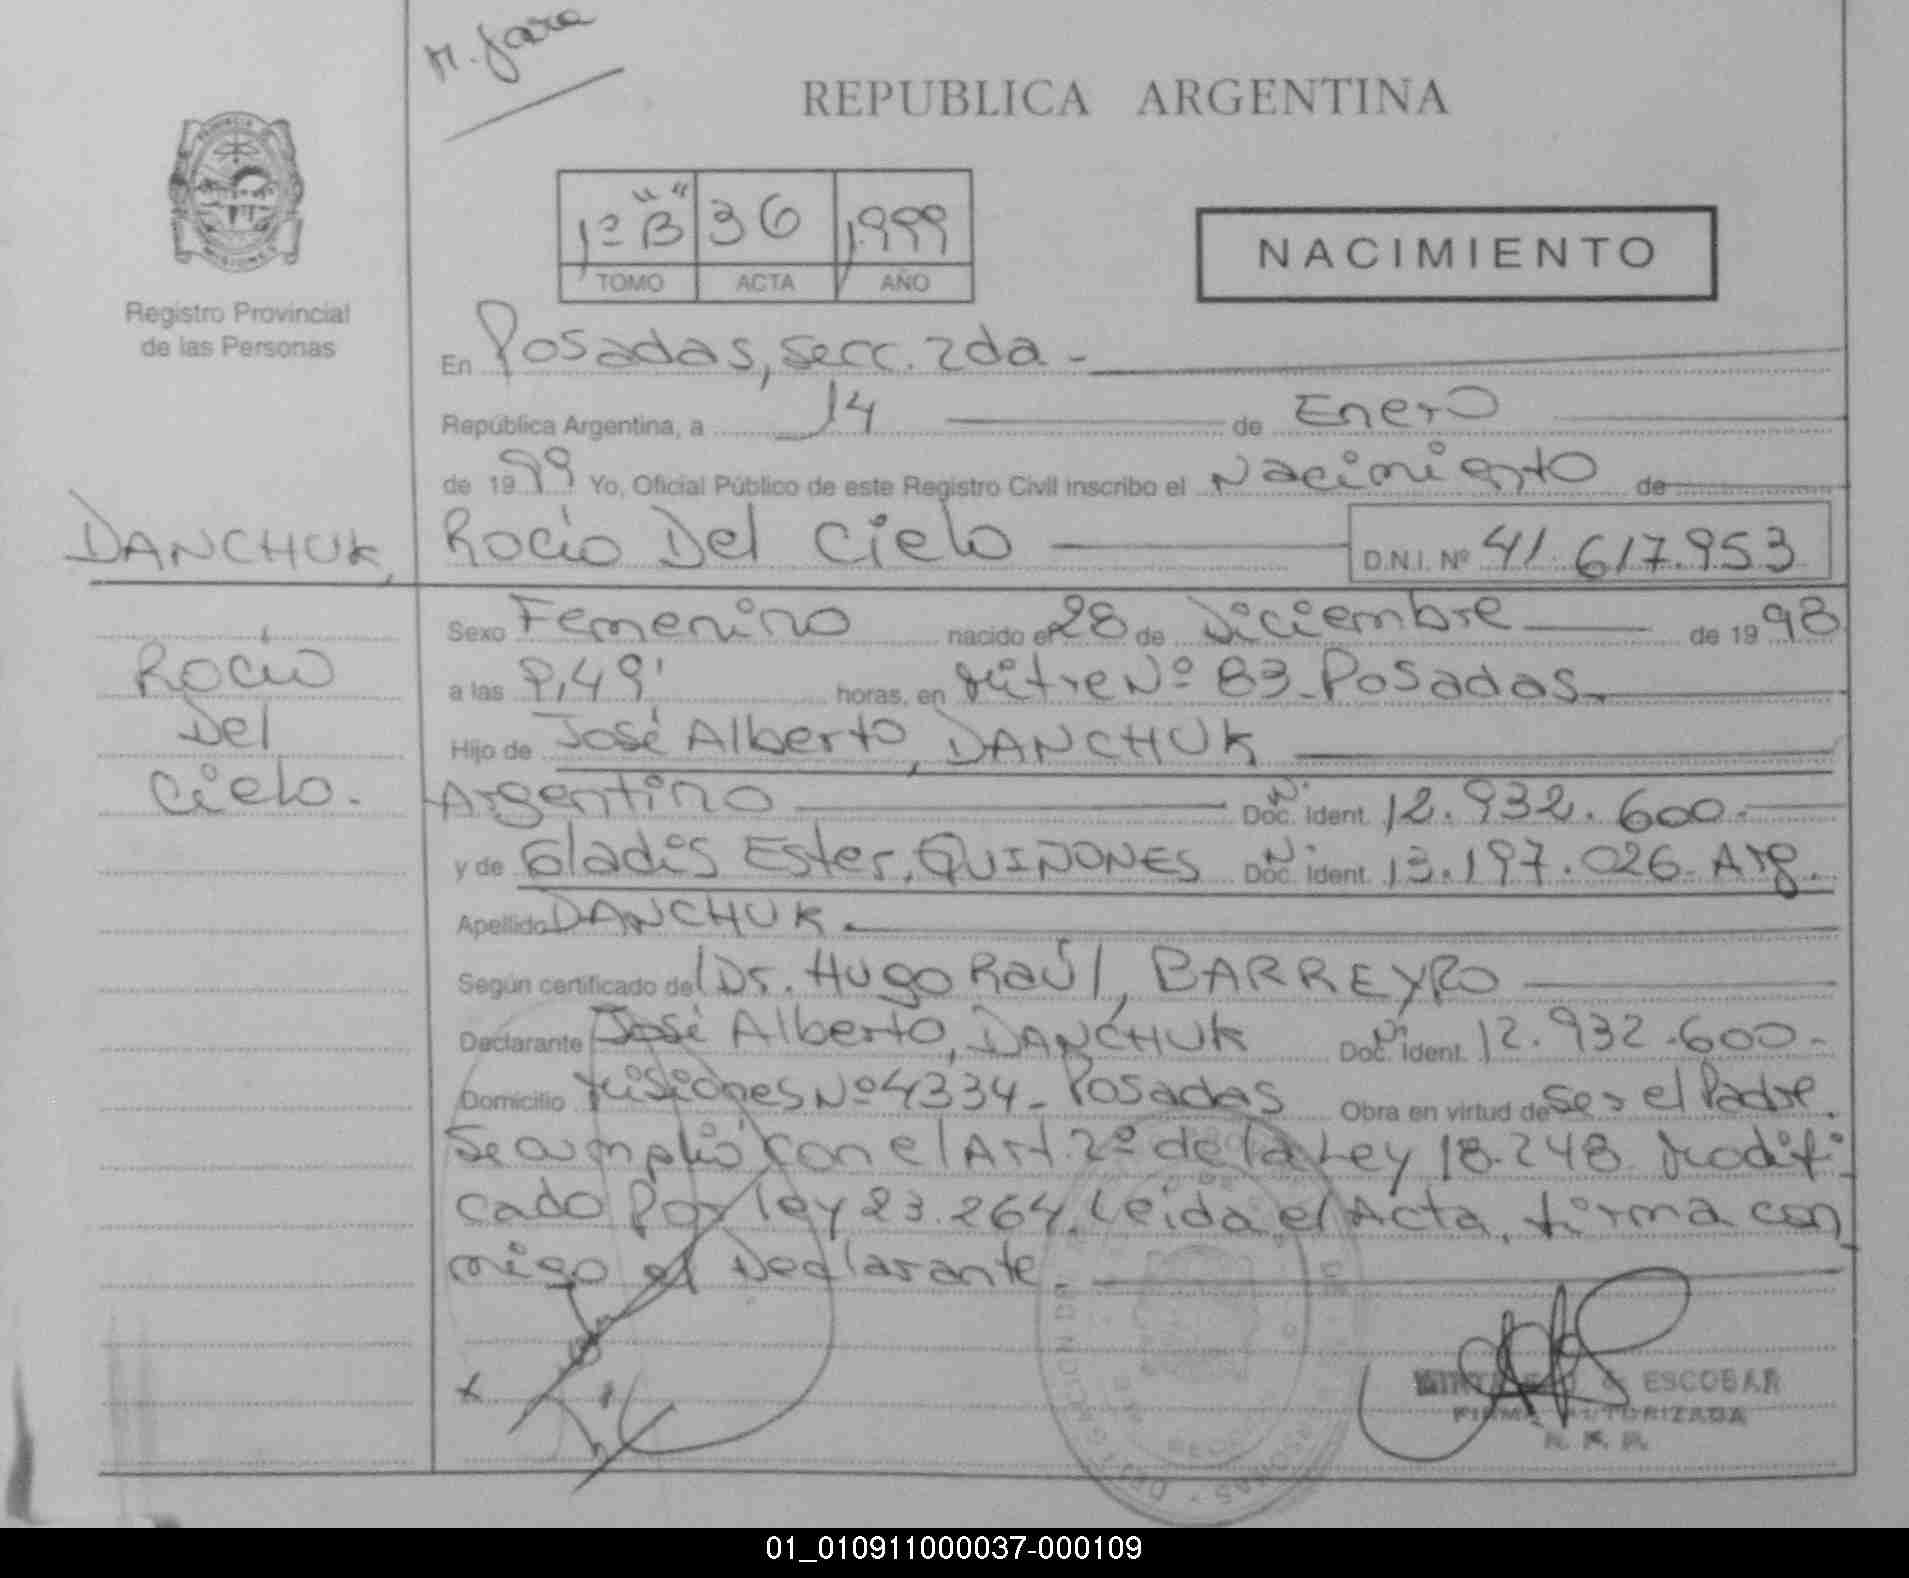 M. Jara
REPUBLICA ARGENTINA
1º "B" 36 1.999
TOMO ACTA AÑO
NACIMIENTO
Registro Provincial
de las Personas
En Posadas, secc. 2da -
República Argentina, a 14 de Enero
de 1999 Yo, Oficial Público de este Registro Civil inscribo el Nacimiento de
DANCHUK,
Rocío Del Cielo D.N.I. Nº 41.617.953
Rocío
Del
Cielo.
Sexo Femenino nacido el 28 de Diciembre de 1998
a las 9,49' horas, en Mitre Nº 83 - Posadas.
Hijo de José Alberto, DANCHUK
Argentino Nº Doc. Ident. 12.932.600.-
y de Gladis Ester, QUIÑONES Nº Doc. Ident. 13.197.026 - Arg.
Apellido DANCHUK.
Según certificado del Dr. Hugo Raúl, BARREYRO
Declarante José Alberto, DANCHUK Nº Doc. Ident. 12.932.600.-
Domicilio Misiones Nº 4334 - Posadas Obra en virtud de Ser el Padre.
Se cumplió con el Art. 2º de la Ley 18.248 Modifi-
cado Por Ley 23.264. Leída el Acta, firma con
migo el Declarante.
x
ESCOBAR
FIRMA AUTORIZADA
R. P. P.
01_010911000037-000109